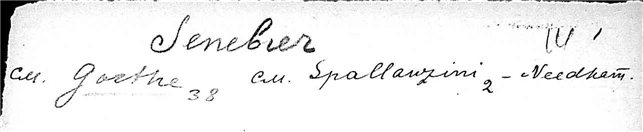 Senebier
см. Goethe 38 см. Spallanzini 2 - Needham.